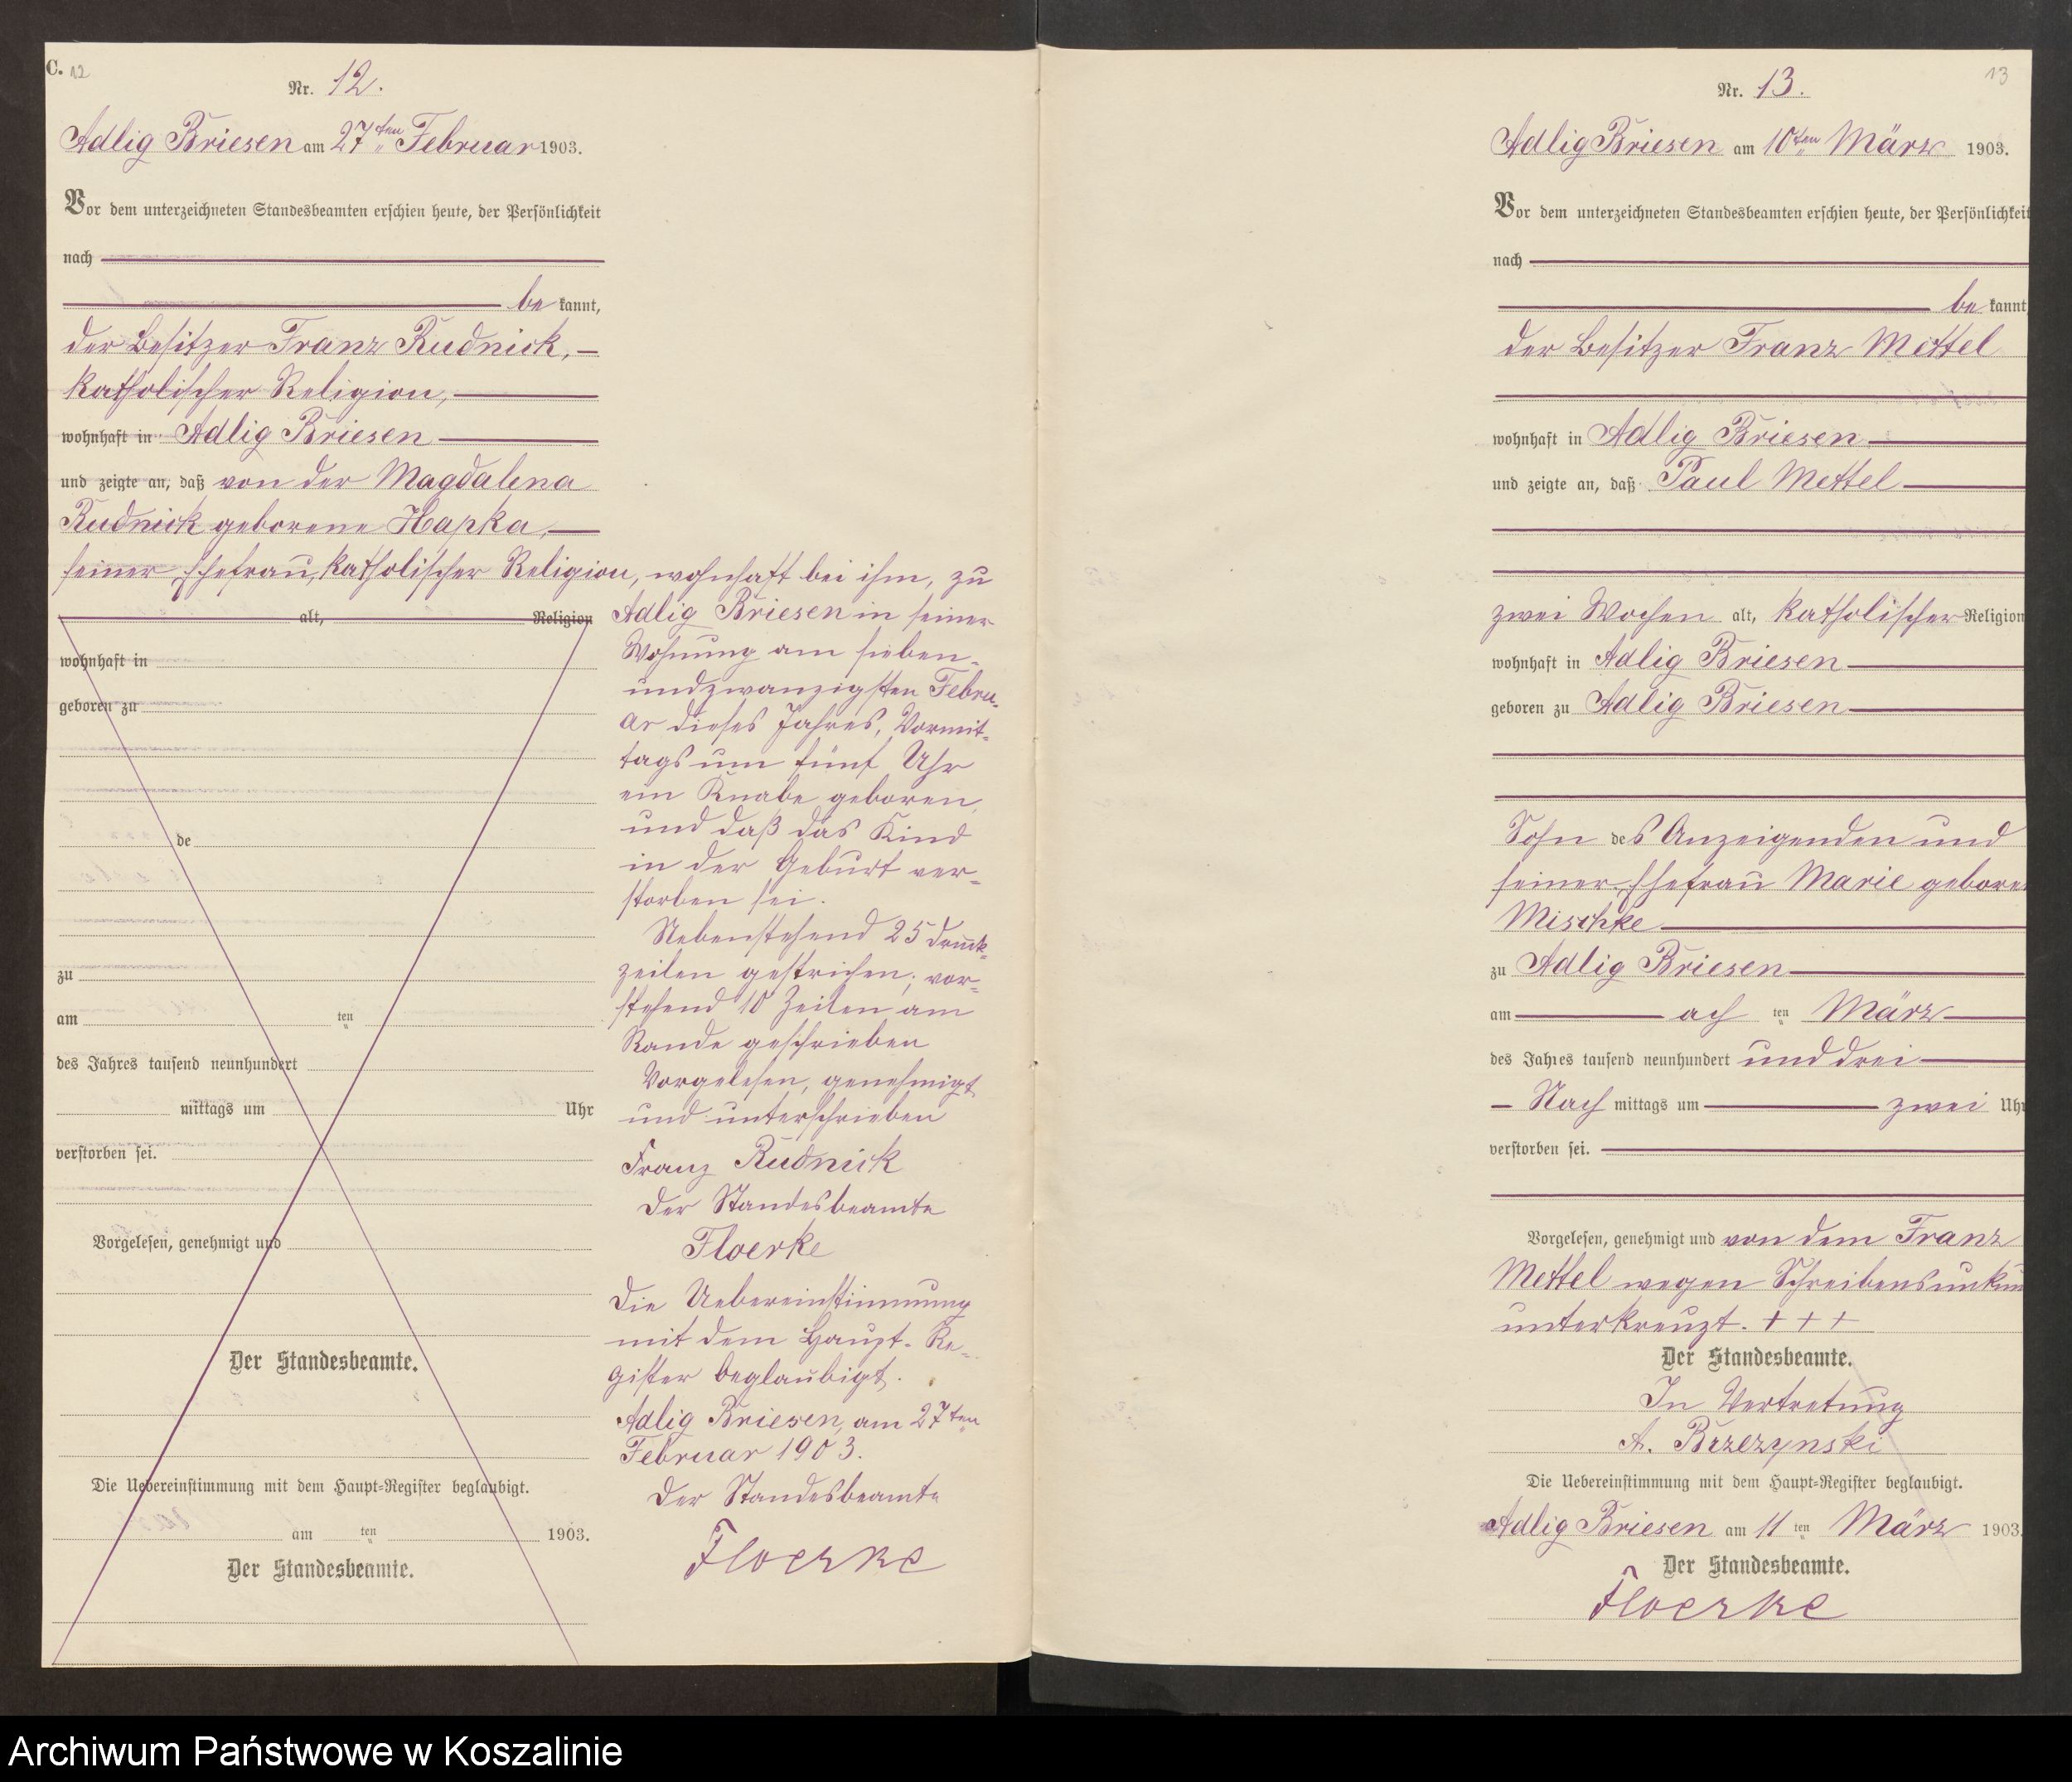 C. 12
Nr. 12.
Adlig Briesen am 27ten Februar 1903.
Vor dem unterzeichneten Standesbeamten erschien heute, der Persönlichkeit
nach
be kannt,
der Besitzer Franz Rudnick,
katholischer Religion,
wohnhaft in Adlig Briesen
und zeigte an, daß von der Magdalena
Rudnick geborene Hapka,
seiner Ehefrau, katholischer Religion, wohnhaft bei ihm, zu
alt, Religion
wohnhaft in
geboren zu
de
zu
am ten
des Jahres tausend neunhundert
mittags um Uhr
verstorben sei.
Vorgelesen, genehmigt und
Der Standesbeamte.
Die Uebereinstimmung mit dem Haupt-Register beglaubigt.
am ten 1903.
Der Standesbeamte.
Adlig Briesen in seiner
Wohnung am sieben-
undzwanzigsten Febru-
ar dieses Jahres, Vormit-
tags um fünf Uhr
ein Knabe geboren,
und daß das Kind
in der Geburt ver-
storben sei.
Nebenstehend 25 Druck-
zeilen gestrichen; vor-
stehend 10 Zeilen am
Rande geschrieben
Vorgelesen, genehmigt
und unterschrieben
Franz Rudnick
Der Standesbeamte
Floerke
Die Uebereinstimmung
mit dem Haupt-Re-
gister beglaubigt.
Adlig Briesen, am 27ten
Februar 1903.
Der Standesbeamte
Floerke
13
Nr. 13.
Adlig Briesen am 10ten März 1903.
Vor dem unterzeichneten Standesbeamten erschien heute, der Persönlichkeit
nach
be kannt
der Besitzer Franz Mettel
wohnhaft in Adlig Briesen
und zeigte an, daß Paul Mettel
zwei Wochen alt, katholischer Religion
wohnhaft in Adlig Briesen
geboren zu Adlig Briesen
Sohn des Anzeigenden und
seiner Ehefrau Marie gebore
Mischke
zu Adlig Briesen
am ach ten März
des Jahres tausend neunhundert und drei
Nach mittags um zwei Uhr
verstorben sei.
Vorgelesen, genehmigt und von dem Franz
Mettel wegen Schreibensunkun
unterkreuzt. + + +
Der Standesbeamte.
In Vertretung
A. Brzezynski
Die Uebereinstimmung mit dem Haupt-Register beglaubigt.
Adlig Briesen am 11 ten März 1903.
Der Standesbeamte.
Floerke
Archiwum Państwowe w Koszalinie